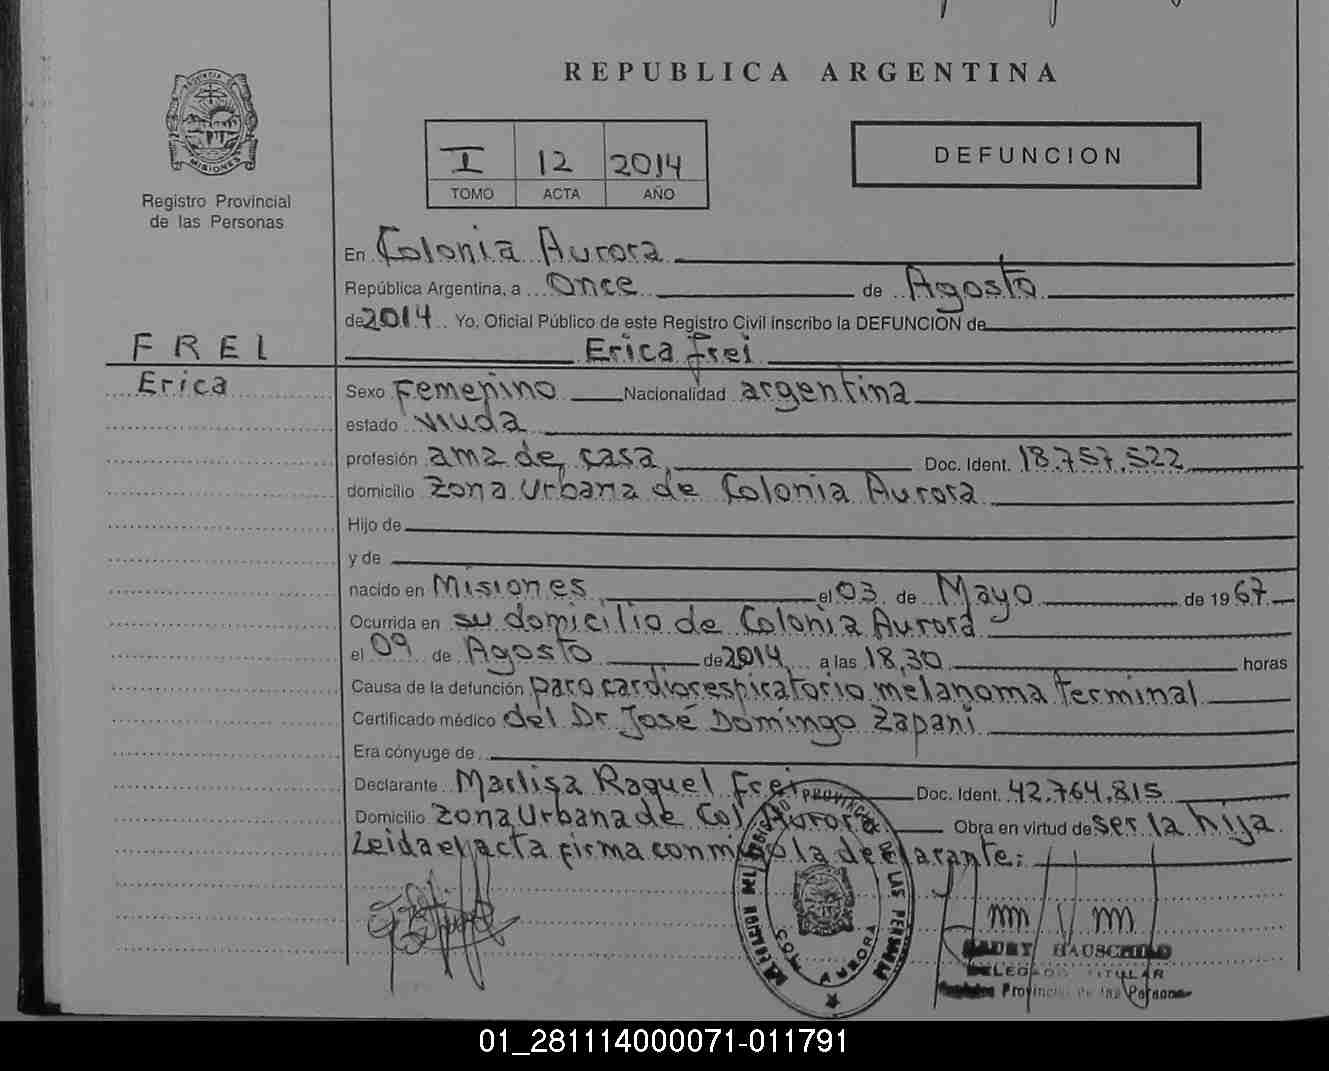 REPUBLICA ARGENTINA
PROVINCIA DE
MISIONES
Registro Provincial
de las Personas
I 12 2014
TOMO ACTA AÑO
DEFUNCION
En Colonia Aurora
República Argentina, a Once de Agosto
de 2014 Yo, Oficial Público de este Registro Civil inscribo la DEFUNCION de
FREI
Erica Frei
Erica
Sexo Femenino Nacionalidad argentina
estado viuda
profesión ama de casa, Doc. Ident. 18.757.522
domicilio Zona Urbana de Colonia Aurora
Hijo de
y de
nacido en Misiones el 03 de Mayo de 1967
Ocurrida en su domicilio de Colonia Aurora
el 09 de Agosto de 2014 a las 18,30 horas
Causa de la defunción paro cardiorespiratorio melanoma terminal
Certificado médico del Dr José Domingo Zapani
Era cónyuge de
Declarante Marlisa Raquel Frei Doc. Ident. 42.764.815
Domicilio Zona Urbana de Col Aurora Obra en virtud de ser la hija
Leida el acta firma conmigo la declarante;
REGISTRO PROVINCIAL DE LAS PERSONAS
COL. AURORA
HAUSCHILD
DELEGADO TITULAR
Registro Provincial de las Personas
01_281114000071-011791